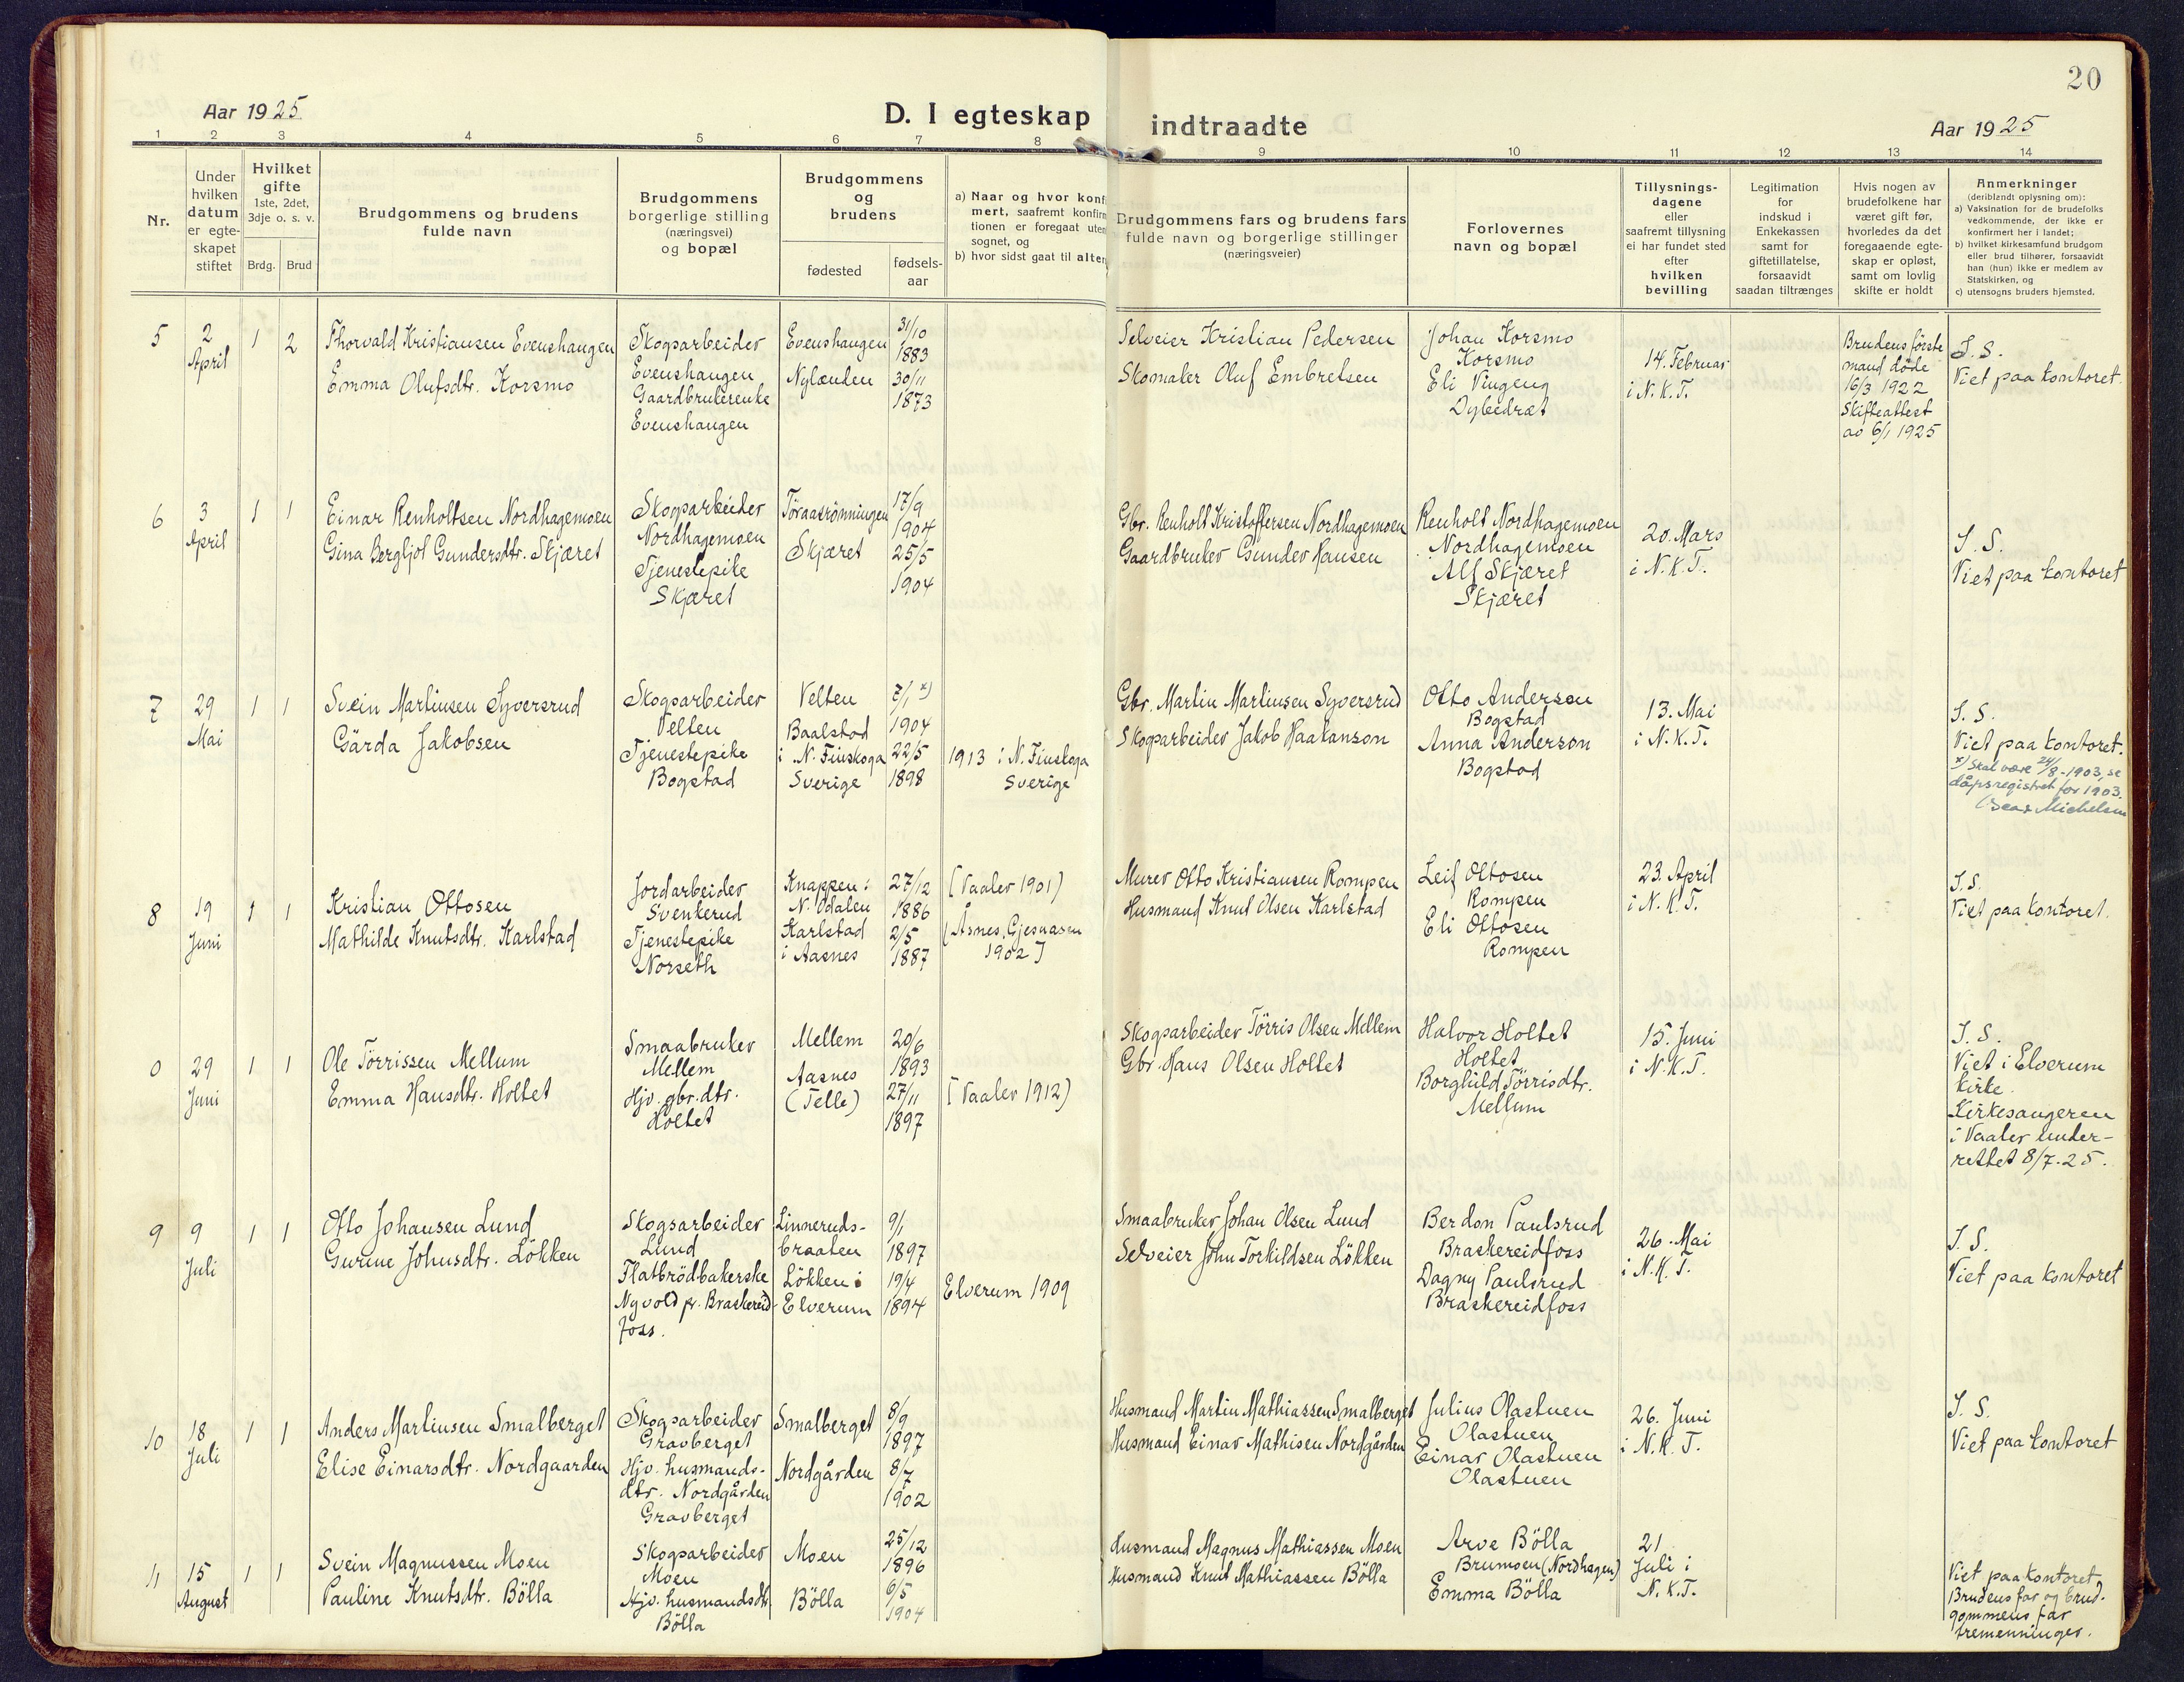 20
Aar 1925
D. I egteskap indtraadte
Aar 1925
1 2 3 4 5 6 7 8 9 10 11 12 13 14
Nr.
Under
hvilken
datum
er egte-
skapet
stiftet
Hvilket
gifte
1ste, 2det,
3dje o. s. v.
Brdg. Brud
Brudgommens og brudens
fulde navn
Brudgommens
borgerlige stilling
(næringsvei)
og bopæl
Brudgommens
og
brudens
fødested
fødsels-
aar
a) Naar og hvor konf
mert, saafremt konfirm
tionen er foregaat uten
sognet, og
b) hvor sidst gaat til alter
Brudgommens fars og brudens fars
fulde navn og borgerlige stillinger
(næringsveier)
Forlovernes
navn og bopæl
Tillysnings-
dagene
eller
saafremt tillysning
ei har fundet sted
efter
hvilken
bevilling
Legitimation
for
indskud i
Enkekassen
samt for
giftetillatelse,
forsaavidt
saadan tiltrænges
Hvis nogen av
brudefolkene har
været gift før,
hvorledes da det
foregaaende egte-
skap er opløst,
samt om lovlig
skifte er holdt
Anmerkninger
(deriblandt oplysning om):
a) Vaksination for de brudefolks
vedkommende, der ikke er
konfirmert her i landet;
b) hvilket kirkesamfund brudgom
eller brud tilhører, forsaavidt
han (hun) ikke er medlem av
Statskirken, og
c) utensogns bruders hjemsted.
5
2
April
1
2
Thorvald Kristiansen Evenshaugen
Emma Olufsdtr. Korsmo
Skogsarbeider
Evenshaugen
Gaardbrukerenke
Evenshaugen
Evenshaugen
Nylænden
31/10
1883
30/11
1873
Selveier Kristian Pedersen
Skomaker Oluf Embretsen
Johan Korsmo
Korsmo
Eli Vingeng
Dybedræt
14. Februar
i N. K. T.
Brudens første
mand døde
16/3 1922
Skifteattest
av 6/1 1925
S. S.
Viet paa kontoret.
6
3
April
1
1
Einar Renholtsen Nordhagemoen
Gina Bergljot Gundersdtr. Skjæret
Skogsarbeider
Nordhagemoen
Tjenestepike
Skjæret
Toraasrönningen
Skjæret
17/9
1904
25/5
1904
Gbr. Renholt Kristoffersen Nordhagemoen
Gaardbruker Gunder Hansen
Renholt Nordhagemoen
Nordhagemoen
Alf Skjæret
Skjæret
20. Mars
i N. K. T.
S. S.
Viet paa kontoret
7
29
Mai
1
1
Svein Martinsen Syversrud
Gärda Jakobsen
Skogsarbeider
Velten
Tjenestepike
Bogstad
Velten
Baalstad
i N. Finskoga
Sverige
7/1 x)
1904
22/5
1898
1913 i N. Finskoga
Sverige
Gbr. Martin Martinsen Syversrud
Skogsarbeider Jakob Haakanson
Otto Andersen
Bogstad
Anna Anderson
Bogstad
13. Mai
i N. K. T.
S. S.
Viet paa kontoret.
x) Skal være 24/8-1903, se
dåpsregistret for 1903.
Michelsen
8
19
Juni
1
1
Kristian Ottosen
Mathilde Knutsdtr. Karlstad
Jordarbeider
Svenkerud
Tjenestepike
Norseth
Knappen i
N. Odalen
Karlstad
i Aasnes
27/12
1886
2/5
1887
[Vaaler 1901)
(Åsnes, Gjesaasen
1902]
Murer Otto Kristiansen Rompen
Husmand Knut Olsen Karlstad
Leif Ottosen
Rompen
Eli Ottosen
Rompen
23. April
i N. K. T.
S. S.
Viet paa kontoret.
0
29
Juni
1
1
Ole Törrissen Mellum
Emma Hansdtr. Holtet
Smaabruker
Mellem
Hjv. gbr. dtr.
Holtet
Mellem
Aasnes
(Telle)
20/6
1893
27/11
1897
[Vaaler 1912)
Skogsarbeider Törris Olsen Mellem
Gbr. Hans Olsen Holtet
Halvor Holtet
Holtet
Borghild Törrisdtr.
Mellum
15. Juni
i N. K. T.
S. S.
Viet i Elverum
kirke.
Kirkesangeren
i Vaaler under-
rettet 8/7-25.
9
9
Juli
1
1
Otto Johansen Lund
Gurine Johnsdtr. Lökken
Skogsarbeider
Lund
Flatbrödbakerske
Nyvold pr. Braskereid-
foss.
Linneruds-
braaten
Lökken i
Elverum
9/1
1897
19/4
1894
Elverum 1909
Smaabruker Johan Olsen Lund
Selveier John Torkildsen Lökken
Berdon Paulsrud
Braskereidfoss
Dagny Paulsrud
Braskereidfoss
26. Mai
i N. K. T.
S. S.
Viet paa kontoret
10
18
Juli
1
1
Anders Martinsen Smalberget
Elise Einarsdtr. Nordgaarden
Skogsarbeider
Gravberget
Hjv. husmands-
dtr. Nordgården
Gravberget
Smalberget
Nordgården
8/9
1897
8/7
1902
Husmand Martin Mathiassen Smalberget
Husmand Einar Mathisen Nordgården
Julius Olastuen
Olastuen
Einar Olastuen
Olastuen
26. Juni
i N. K. T.
S. S.
Viet paa kontoret
11
15
August
1
1
Svein Magnussen Moen
Pauline Knutsdtr. Bölla
Skogsarbeider
Moen
Hjv. husmandsdtr.
Bölla
Moen
Bölla
25/12
1896
6/5
1904
Husmand Magnus Mathiassen Moen
Husmand Knut Mathiassen Bölla
Arve Bölla
Brumoen (Nordhagen)
Emma Bölla
21
Juli i
N. K. T.
Viet paa kontoret
Brudens far og brud-
gommens far
tremenninger.